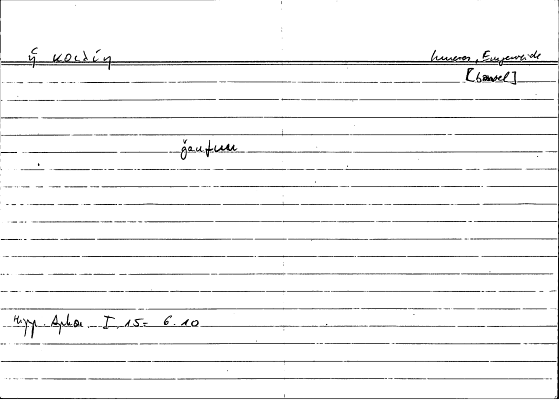 ἡ κοιλίη
Inneres, Eingeweide
[bowel]
Hipp. Aphor. I 15 = 6.10